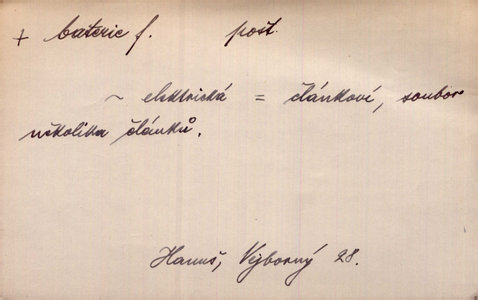 + baterie f. pošt.
~ elektrická = článkoví, soubor
několika článků.
Hanuš, Vejborný 28.